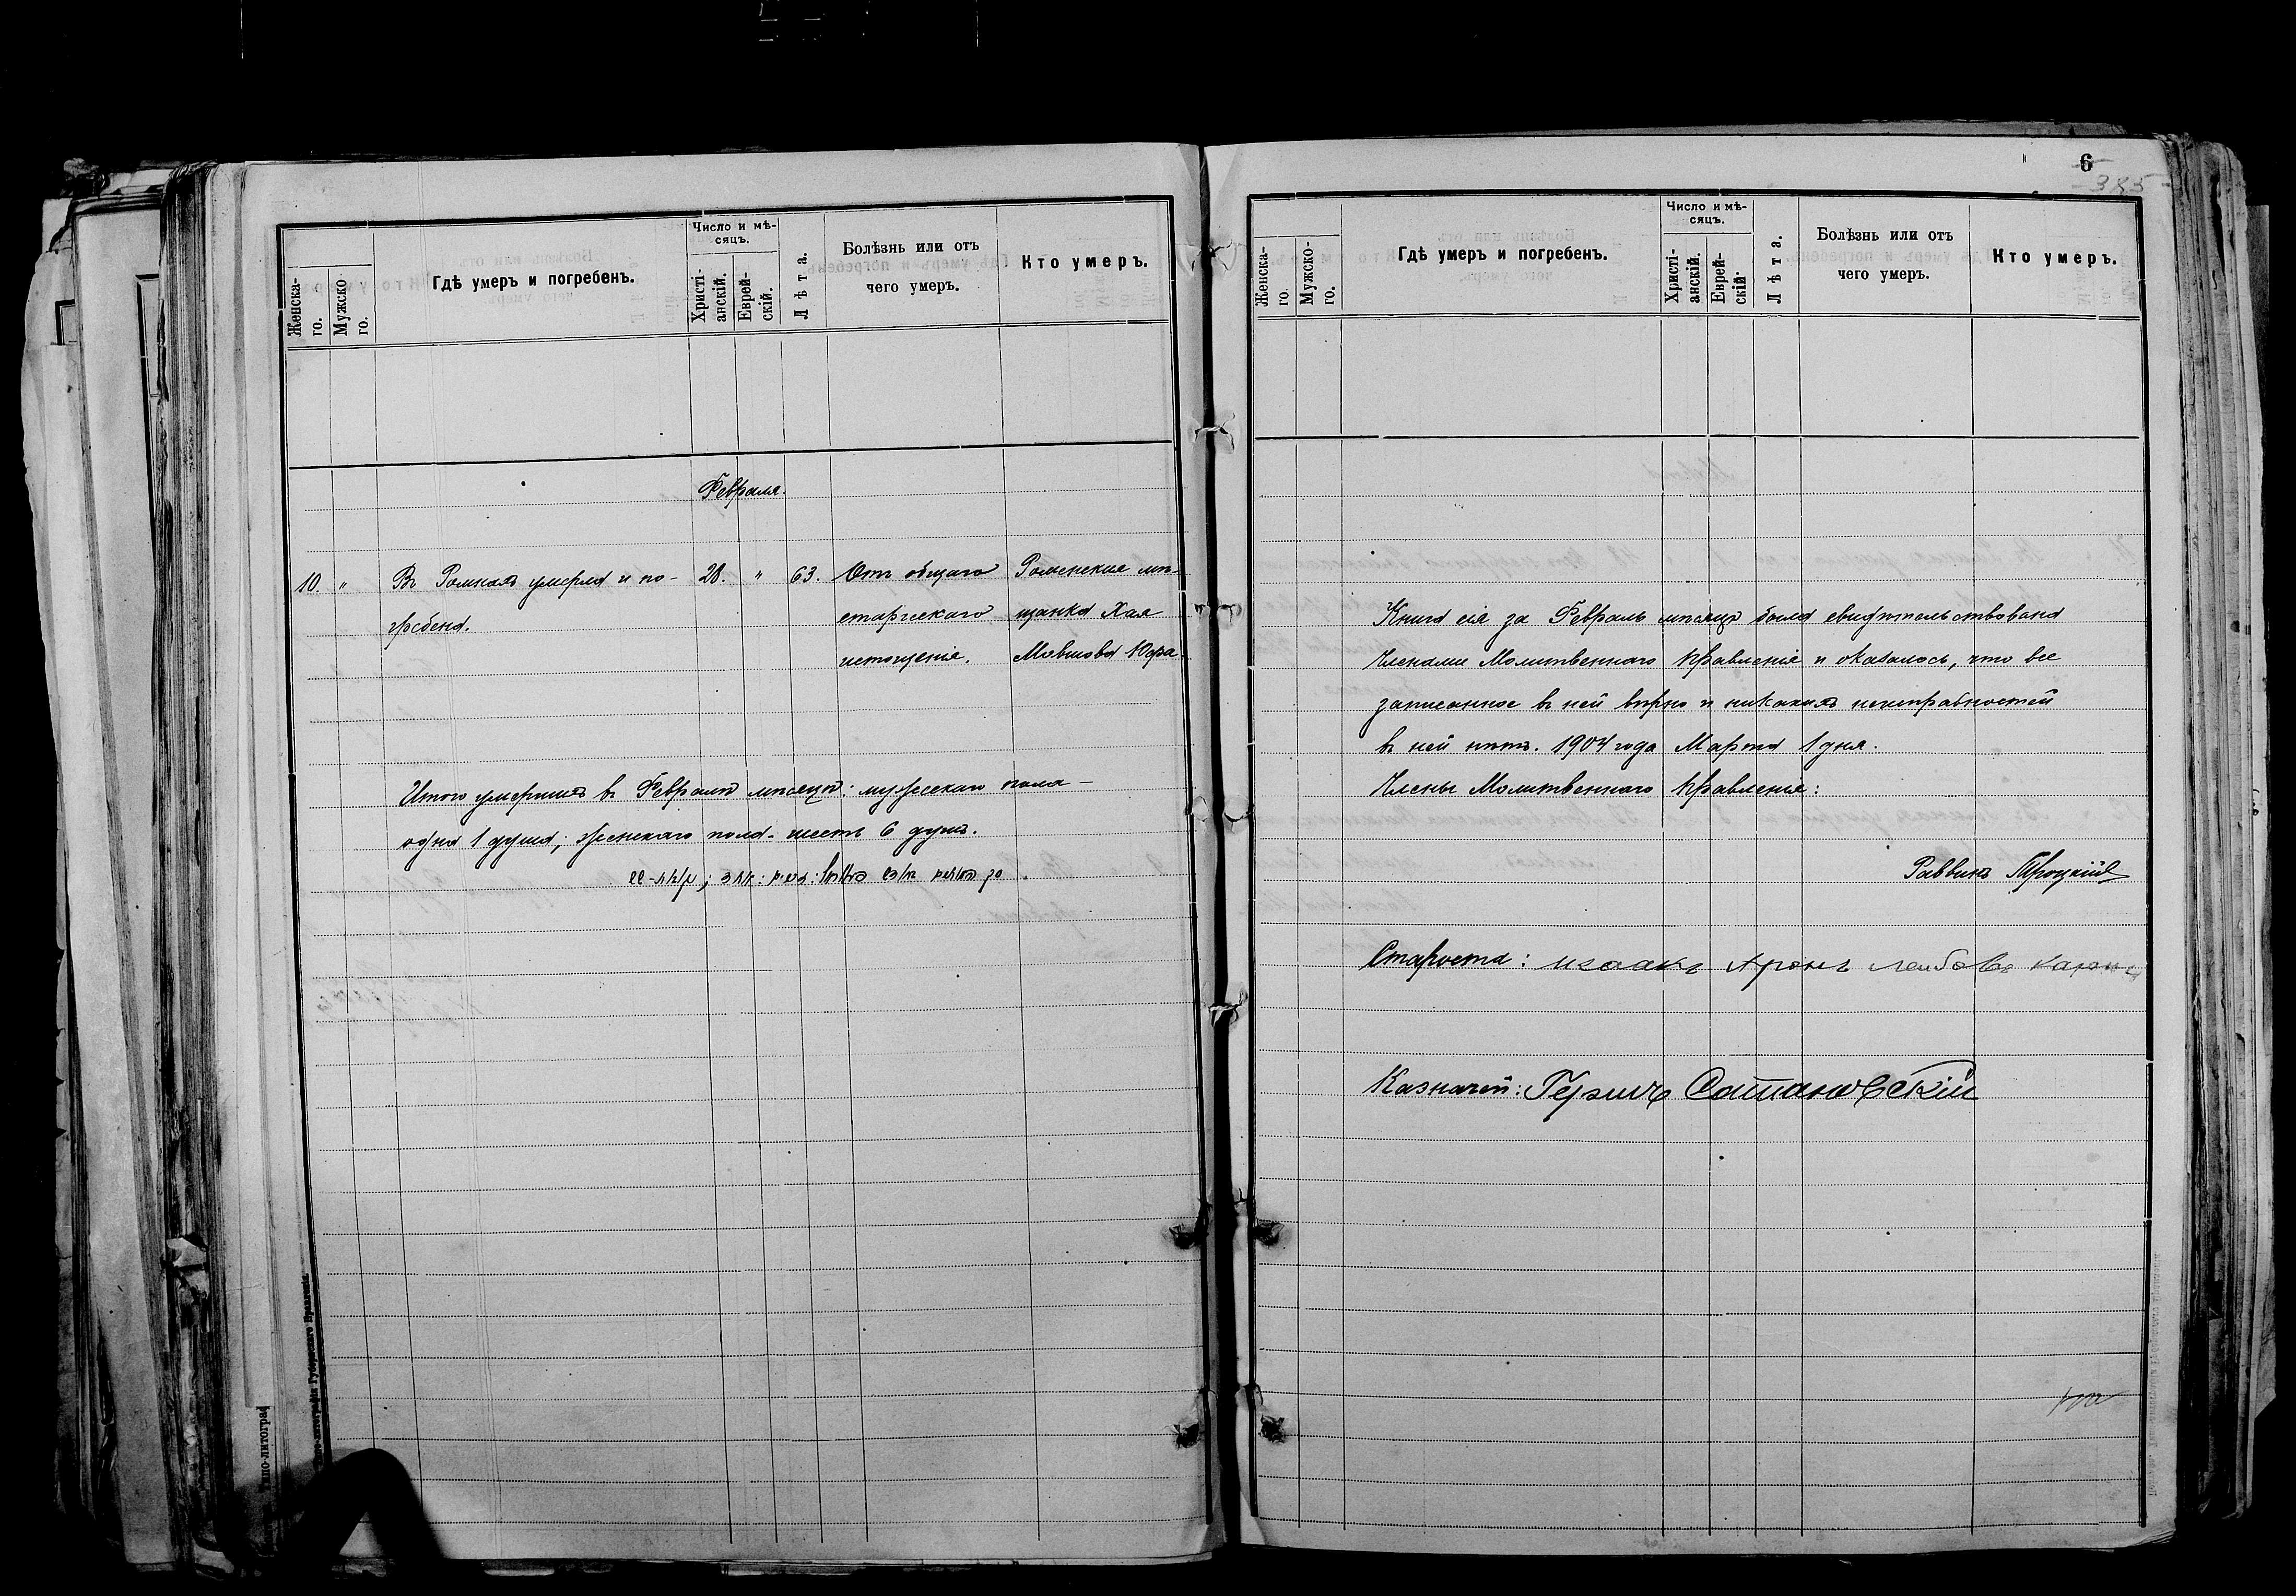 Женска-
го.
Мужско
го.
Гдѣ умеръ и погребенъ.
Число и мѣ-
сяцъ.
Христі-
анскій.
Еврей-
скій.
Лѣта.
Болѣзнь или отъ
чего умеръ.
Кто умеръ.
Февраля.
10. " Въ Ромнахъ умерла и по- 28. " 63. Отъ общаго Роменская мѣ-
гребена. старческаго щанка Хая
истощенія. Мовшова Юфа
Итого умершихъ въ Февралѣ мѣсяцѣ: мужескаго пола —
одна 1 душа; женскаго пола - шесть 6 душъ.
6
385
Женска-
го.
Мужско-
го.
Гдѣ умеръ и погребенъ.
Число и мѣ-
сяцъ.
Христі-
анскій.
Еврей-
скій.
Лѣта.
Болѣзнь или отъ
чего умеръ.
Кто умеръ.
Книга сія за Февраль мѣсяцъ была свидѣтельствована
Членами Молитвеннаго Правленія и оказалось, что все
записанное въ ней вѣрно и никакихъ неисправностей
въ ней нѣтъ. 1904 года Марта 1 дня.
Члены Молитвеннаго Правленія:
Раввинъ Троцкій
Староста: Исаакъ Аронъ Лейбовъ
Казначей: Гершъ Сотановскій